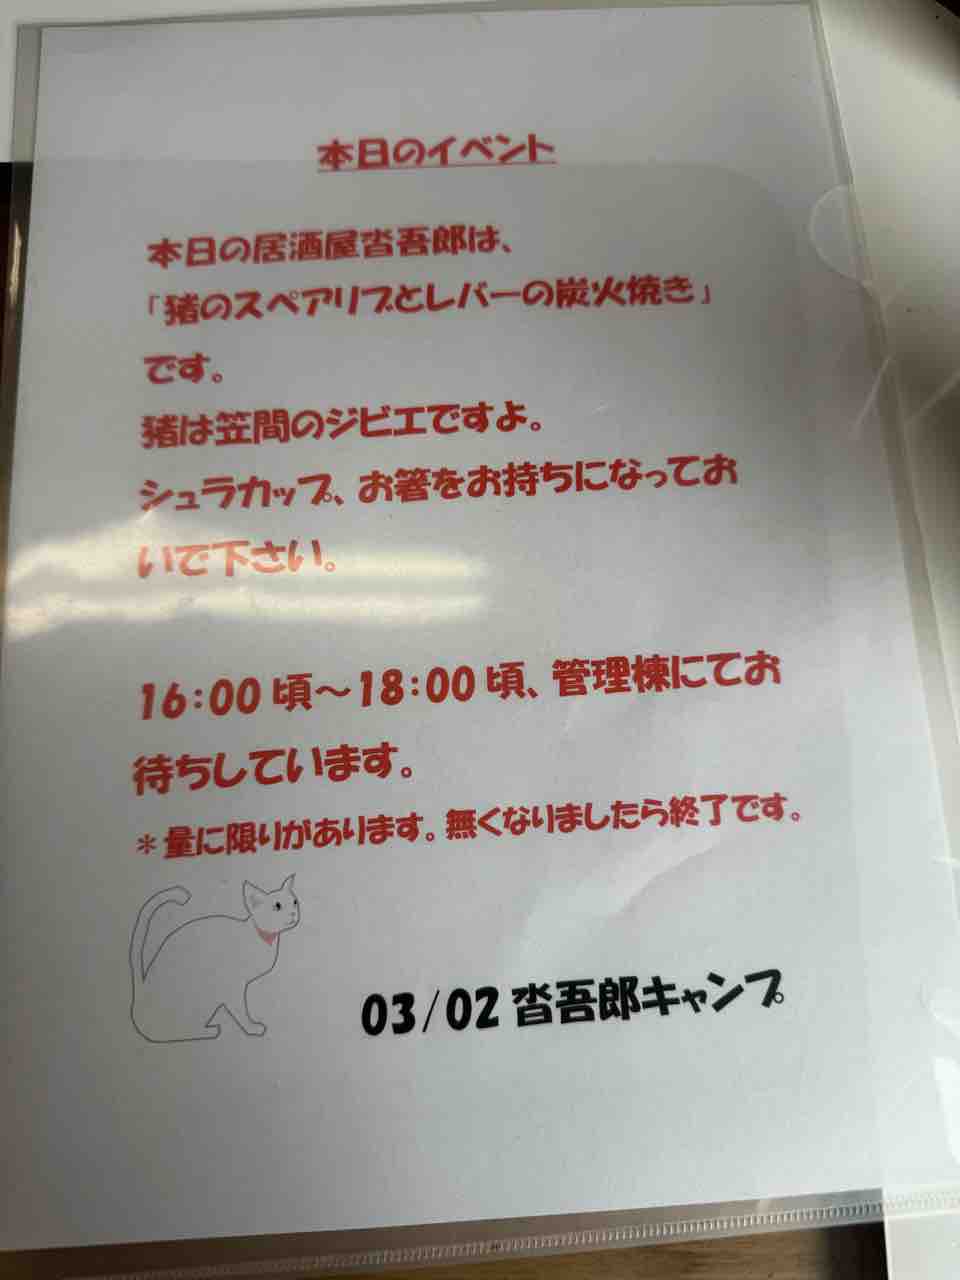 本日のイベント
本日の居酒屋沓吾郎は、
「猪のスペアリブとレバーの炭火焼き」
です。
猪は笠間のジビエですよ。
シュラカップ、お箸をお持ちになってお
いで下さい。
16:00頃～18:00頃、管理棟にてお
待ちしています。
＊量に限りがあります。無くなりましたら終了です。
03/02 沓吾郎キャンプ